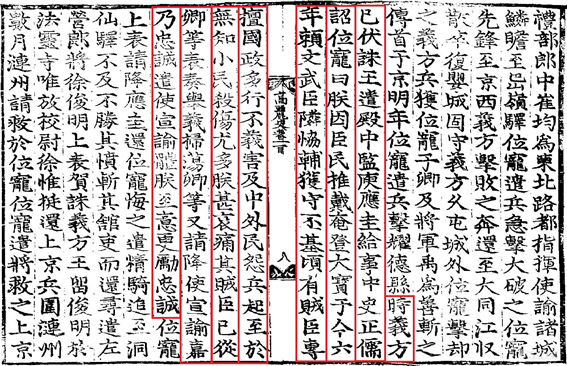 禮部郎中崔均爲東北路都指揮使諭諸城
鱗瞻至岊嶺驛位寵遣兵急擊大破之位寵
先鋒至京西義方擊敗之奔還至大同江収
散卒復嬰城固守義方久屯城外位寵擊却
之義方兵獲位寵子卿及將軍禹爲善斬之
傳首于京明年位寵遣兵擊耀德縣時義方
已伏誅王遣殿中監庾應圭給事中史正儒
詔位寵曰朕因臣民推戴奄登大寶于今六
年賴文武臣隣協輔獲守丕基頃有賊臣專
八
擅國政多行不義害及中外民怨兵起至於
無知小民殺傷尤多朕甚哀痛其賊臣已從
卿等表奏興義掃蕩卿等又請降使宣諭嘉
乃忠誠遣使宣諭體朕至意更勵忠誠位寵
上表請降應圭還位寵悔之遣精騎追至洞
仙驛不及不勝其憤斬其舘吏而還尋遣左
營郎將徐俊明上表賀誅義方王留俊明於
法靈寺唯放校尉徐惟挺還上京兵圍漣州
數月漣州請救於位寵位寵遣將救之上京